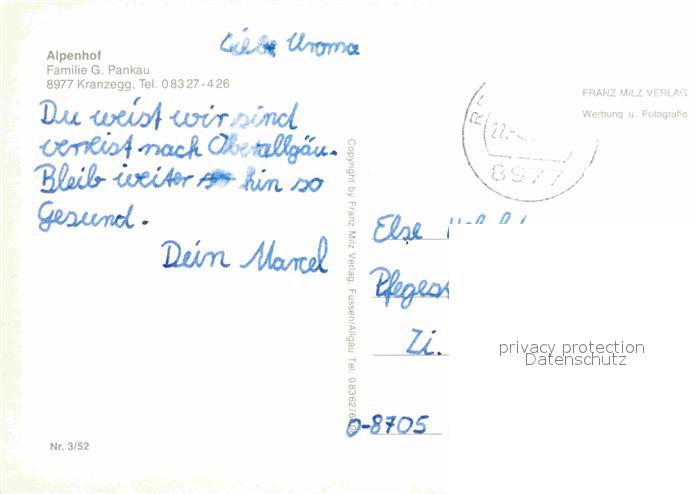 Liebe Uroma
Alpenhof
Familie G. Pankau
8977 Kranzegg, Tel. 08327-426
Du weist wir sind
verreist nach Oberallgäu.
Bleib weiter hin so
Gesund.
Dein Marcel
Nr. 3/52
Copyright by Franz Milz Verlag, Füssen/Allgäu Tel. 08362/6
FRANZ MILZ VERLAG
Werbung u. Fotografie
22.
8977
Else
Zi.
privacy protection
Datenschutz
O-8705